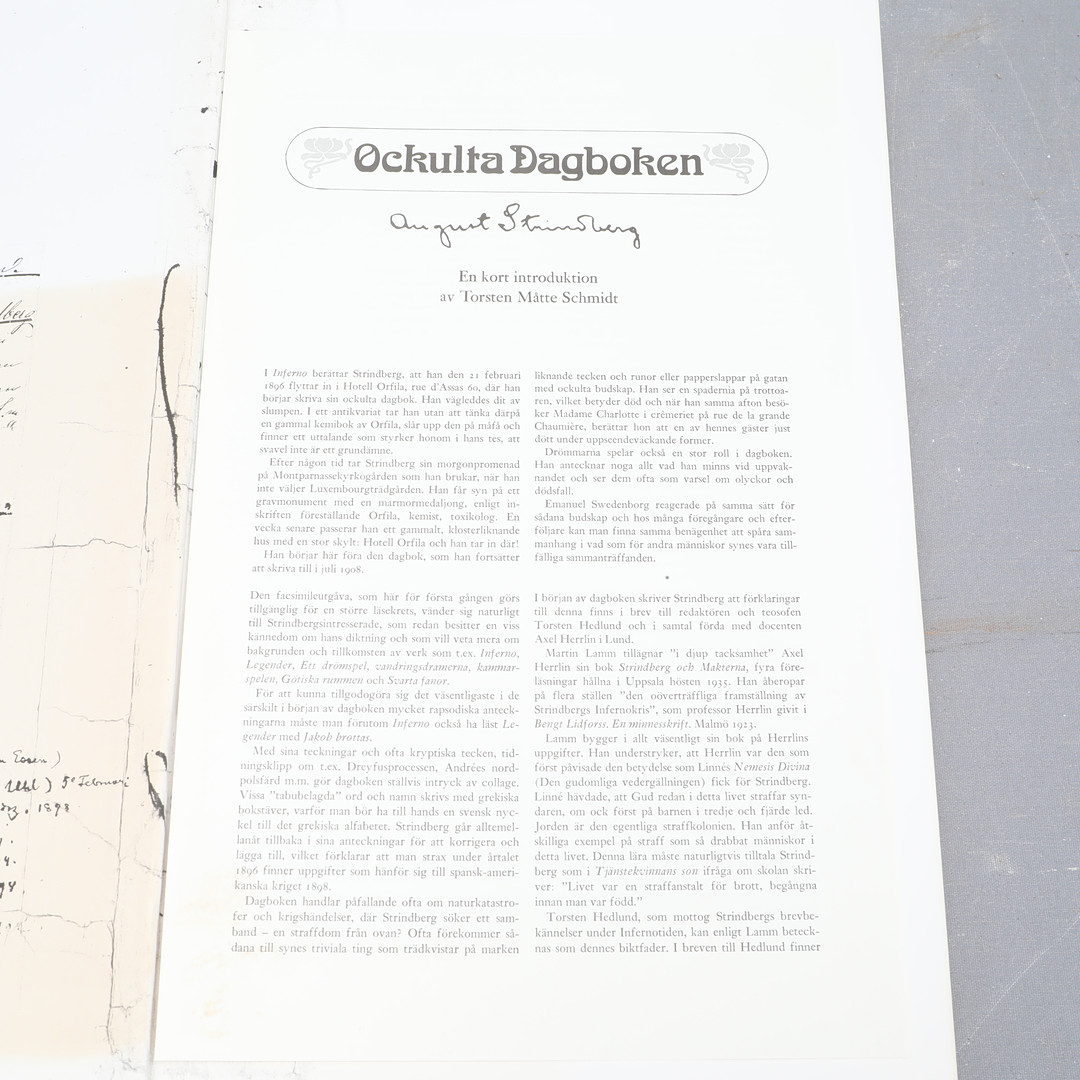 Ockulta Dagboken
August Strindberg
En kort introduktion
av Torsten Måtte Schmidt
I Inferno berättar Strindberg, att han den 21 februari
1896 flyttar in i Hotell Orfila, rue d'Assas 60, där han
börjar skriva sin ockulta dagbok. Han vägleddes dit av
slumpen. I ett antikvariat tar han utan att tänka därpå
en gammal kemibok av Orfila, slår upp den på måfå och
finner ett uttalande som styrker honom i hans tes, att
svavel inte är ett grundämne.
Efter någon tid tar Strindberg sin morgonpromenad
på Montparnassekyrkogården som han brukar, när han
inte väljer Luxembourgträdgården. Han får syn på ett
gravmonument med en marmormedaljong, enligt in-
skriften föreställande Orfila, kemist, toxikolog. En
vecka senare passerar han ett gammalt, klosterliknande
hus med en stor skylt: Hotell Orfila och han tar in där!
Han börjar här föra den dagbok, som han fortsätter
att skriva till i juli 1908.
Den facsimileutgåva, som här för första gången görs
tillgänglig för en större läsekrets, vänder sig naturligt
till Strindbergsintresserade, som redan besitter en viss
kännedom om hans diktning och som vill veta mera om
bakgrunden och tillkomsten av verk som t.ex. Inferno,
Legender, Ett drömspel, vandringsdramerna, kammar-
spelen, Götiska rummen och Svarta fanor.
För att kunna tillgodogöra sig det väsentligaste i de
särskilt i början av dagboken mycket rapsodiska anteck-
ningarna måste man förutom Inferno också ha läst Le-
gender med Jakob brottas.
Med sina teckningar och ofta kryptiska tecken, tid-
ningsklipp om t.ex. Dreyfusprocessen, Andrées nord-
polsfärd m.m. gör dagboken ställvis intryck av collage.
Vissa "tabubelagda" ord och namn skrivs med grekiska
bokstäver, varför man bör ha till hands en svensk nyc-
kel till det grekiska alfabetet. Strindberg går alltemel-
lanåt tillbaka i sina anteckningar för att korrigera och
lägga till, vilket förklarar att man strax under årtalet
1896 finner uppgifter som hänför sig till spansk-ameri-
kanska kriget 1898.
Dagboken handlar påfallande ofta om naturkatastro-
fer och krigshändelser, där Strindberg söker ett sam-
band – en straffdom från ovan? Ofta förekommer så-
dana till synes triviala ting som trädkvistar på marken
liknande tecken och runor eller papperslappar på gatan
med ockulta budskap. Han ser en spadernia på trottoa-
ren, vilket betyder död och när han samma afton besö-
ker Madame Charlotte i crêmeriet på rue de la grande
Chaumière, berättar hon att en av hennes gäster just
dött under uppseendeväckande former.
Drömmarna spelar också en stor roll i dagboken.
Han antecknar noga allt vad han minns vid uppvak-
nandet och ser dem ofta som varsel om olyckor och
dödsfall.
Emanuel Swedenborg reagerade på samma sätt för
sådana budskap och hos många föregångare och efter-
följare kan man finna samma benägenhet att spåra sam-
manhang i vad som för andra människor synes vara till-
fälliga sammanträffanden.
I början av dagboken skriver Strindberg att förklaringar
till denna finns i brev till redaktören och teosofen
Torsten Hedlund och i samtal förda med docenten
Axel Herrlin i Lund.
Martin Lamm tillägnar "i djup tacksamhet" Axel
Herrlin sin bok Strindberg och Makterna, fyra före-
läsningar hållna i Uppsala hösten 1935. Han åberopar
på flera ställen "den oöverträffliga framställning av
Strindbergs Infernokris", som professor Herrlin givit i
Bengt Lidforss. En minnesskrift. Malmö 1923.
Lamm bygger i allt väsentligt sin bok på Herrlins
uppgifter. Han understryker, att Herrlin var den som
först påvisade den betydelse som Linnés Nemesis Divina
(Den gudomliga vedergällningen) fick för Strindberg.
Linné hävdade, att Gud redan i detta livet straffar syn-
daren, om ock först på barnen i tredje och fjärde led.
Jorden är den egentliga straffkolonien. Han anför åt-
skilliga exempel på straff som så drabbat människor i
detta livet. Denna lära måste naturligtvis tilltala Strind-
berg som i Tjänstekvinnans son ifråga om skolan skri-
ver: "Livet var en straffanstalt för brott, begångna
innan man var född."
Torsten Hedlund, som mottog Strindbergs brevbe-
kännelser under Infernotiden, kan enligt Lamm beteck-
nas som dennes biktfader. I breven till Hedlund finner
Essen)
5e Februari
1898